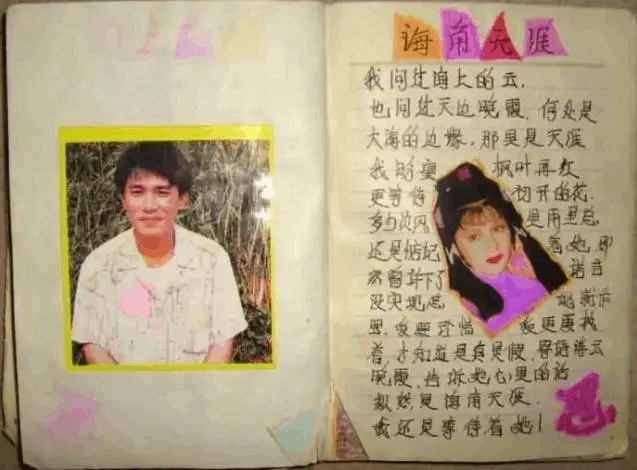 海角天涯
我问过海上的云,
也问过天边晚霞,何处是
大海的边缘,那里是天涯
我盼望 枫叶再红
更等待 初开的花,
多少次风 里雨里总
还是惦记 着她,即
然曾许下了 诺言
没实现
着,才知道是真是假,寄语浮云
晚霞,告诉她心里的话
纵然是海角天涯,
我还是等待着她!